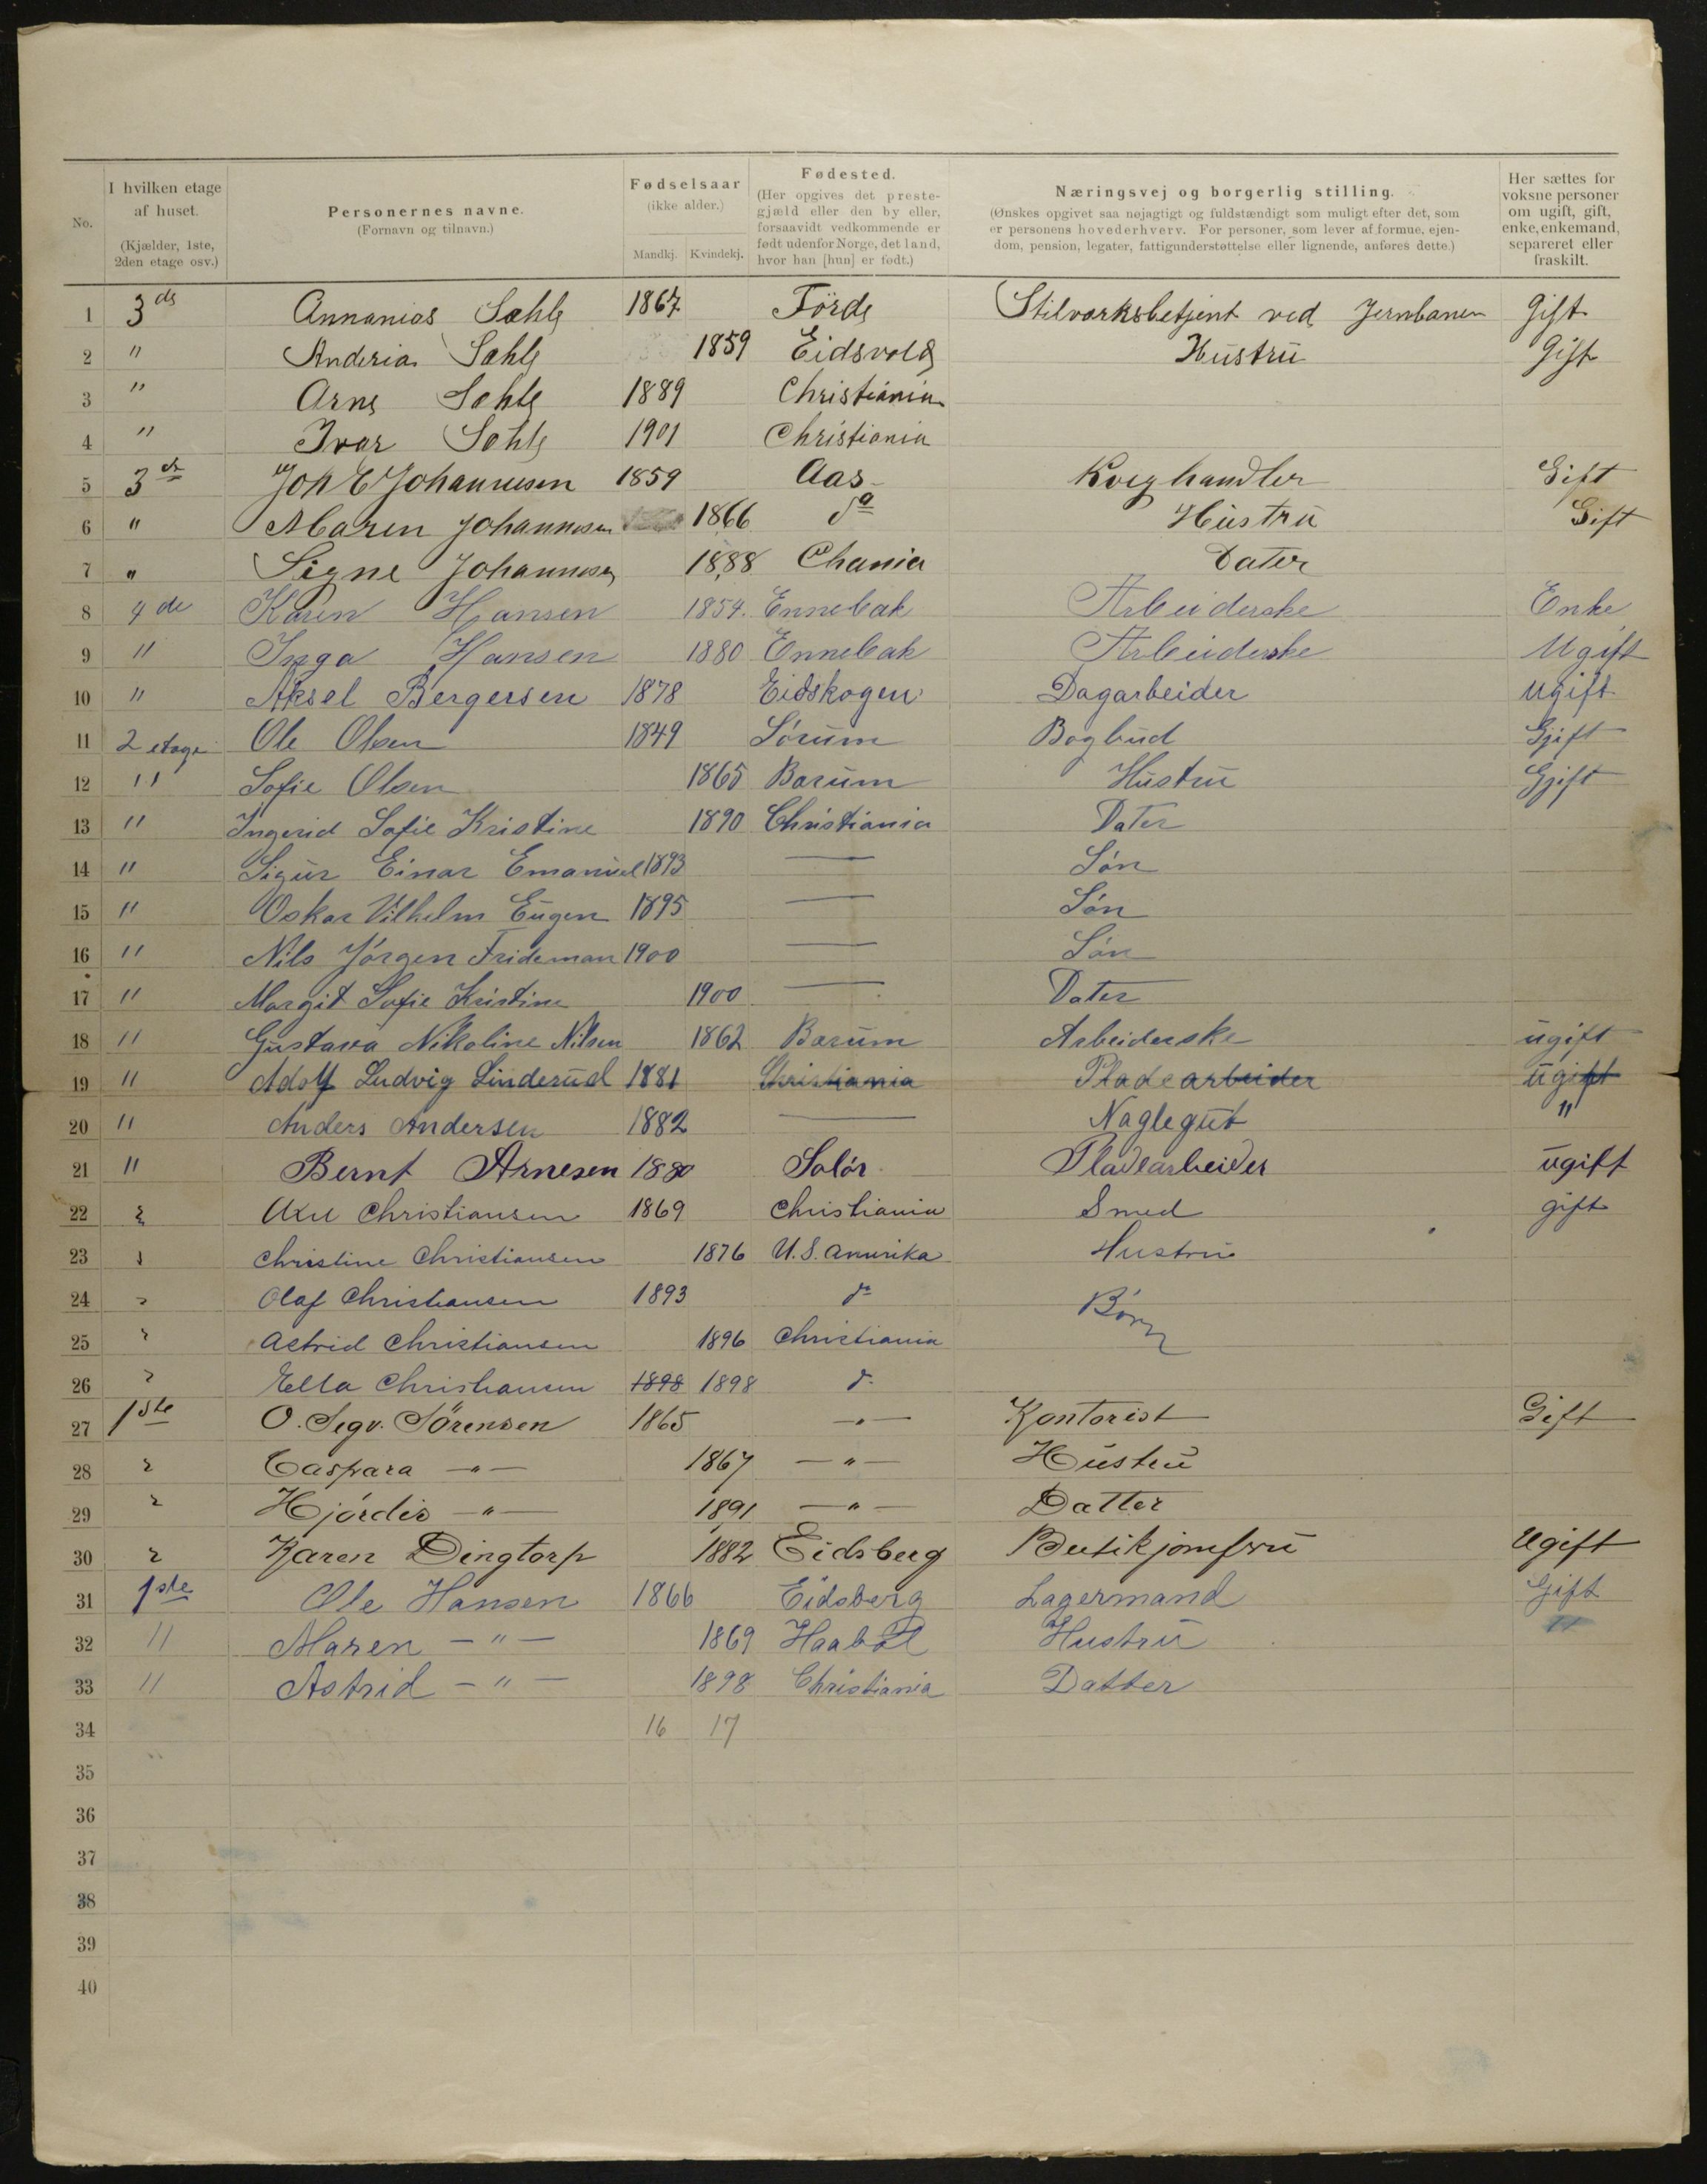 No. I hvilken etage af huset. (Kjælder, 1ste, 2den etage osv.) Personernes navne. (Fornavn og tilnavn.) Fødselsaar (ikke alder.) Mandkj. Kvindekj. Fødested. (Her opgives det prestegjæld eller den by eller, forsaavidt vedkommende er født udenfor Norge, det land, hvor han [hun] er født.) Næringsvej og borgerlig stilling. (Ønskes opgivet saa nøjagtigt og fuldstændigt som muligt efter det, som er personens hovederhverv. For personer, som lever af formue, ejendom, pension, legater, fattigunderstøttelse eller lignende, anføres dette.) Her sættes for voksne personer om ugift, gift, enke, enkemand, separeret eller fraskilt.
1 3de Annanias Sæhle 1867 Førde Stilværksbetjent ved Jernbanen Gift
2 " Anderia Sæhle 1859 Eidsvold Hustru Gift
3 " Arne Sæhle 1889 Christiania
4 " Ivar Sæhle 1901 Christiania
5 3de Joh E Johannesen 1859 Aas Kvæghandler Gift
6 " Maren Johannesen 1866 do Hustru Gift
7 " Signe Johannesen 1888 Chania Dater
8 4de Karen Hansen 1854. Ennebak Arbeiderske Enke
9 " Inga Hansen 1880 Ennebak Arbeiderske Ugift
10 " Aksel Bergersen 1878 Eidskogen Dagarbeider ugift
11 2 etage Ole Olsen 1849 Sørum Bogbud Gjift
12 " Sofie Olsen 1865 Bærum Hustru Gjift
13 " Ingerid Sofie Kristine 1890 Christiania Dater
14 " Sigur Einar Emanuel 1893 — Søn
15 " Oskar Vilhelm Eugen 1895 — Søn
16 " Nils Jørgen Frideman 1900 — Søn
17 " Margit Sofie Kristine 1900 — Dater
18 " Gustava Nikoline Nilsen 1862 Bærum Arbeiderske ugift
19 " Adolf Ludvig Linderud 1881 Christiania Pladearbeider ugift
20 " Anders Andersen 1882 — Naglegut "
21 " Bernt Arnesen 1880 Solør Pladearbeider ugift
22 Axel Christiansen 1869 Christiania Smed gift
23 Christine Christiansen 1876 U.S. Amerika Hustru
24 Olaf Christiansen 1893 do Børn
25 Astrid Christiansen 1896 Christiania
26 Ella Christiansen 1898 1898 do
27 1ste O. Segv. Sörensen 1865 — " — Kontorist Gift
28 Caspara — " — 1867 — " — Hustru
29 Hjørdis — " — 1891 — " — Datter
30 Karen Dingtorp 1882 Eidsberg Butikjomfru Ugift
31 1ste Ole Hansen 1866 Eidsberg Lagermand Gift
32 " Maren — " — 1869 Haabøl Hustru "
33 " Astrid — " — 1898 Christiania Datter
34 16 17
35
36
37
38
39
40